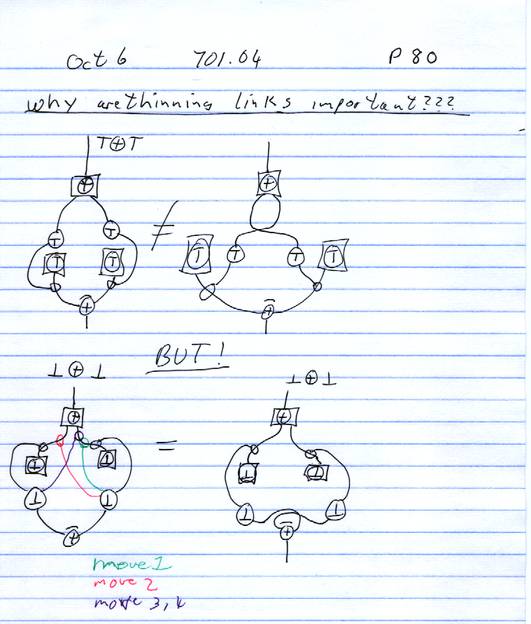 Oct 6 701.04 P 80
why are thinning links important???
T⊕T
⊕ ≠ ⊕
T T T T
T T T T
⊕ ⊕
BUT!
⊥ ⊕ ⊥ ⊥ ⊕ ⊥
⊕ = ⊕
⊥ ⊥ ⊥ ⊥
⊥ ⊥ ⊥ ⊥
⊕ ⊕
move 1
move 2
move 3, 4